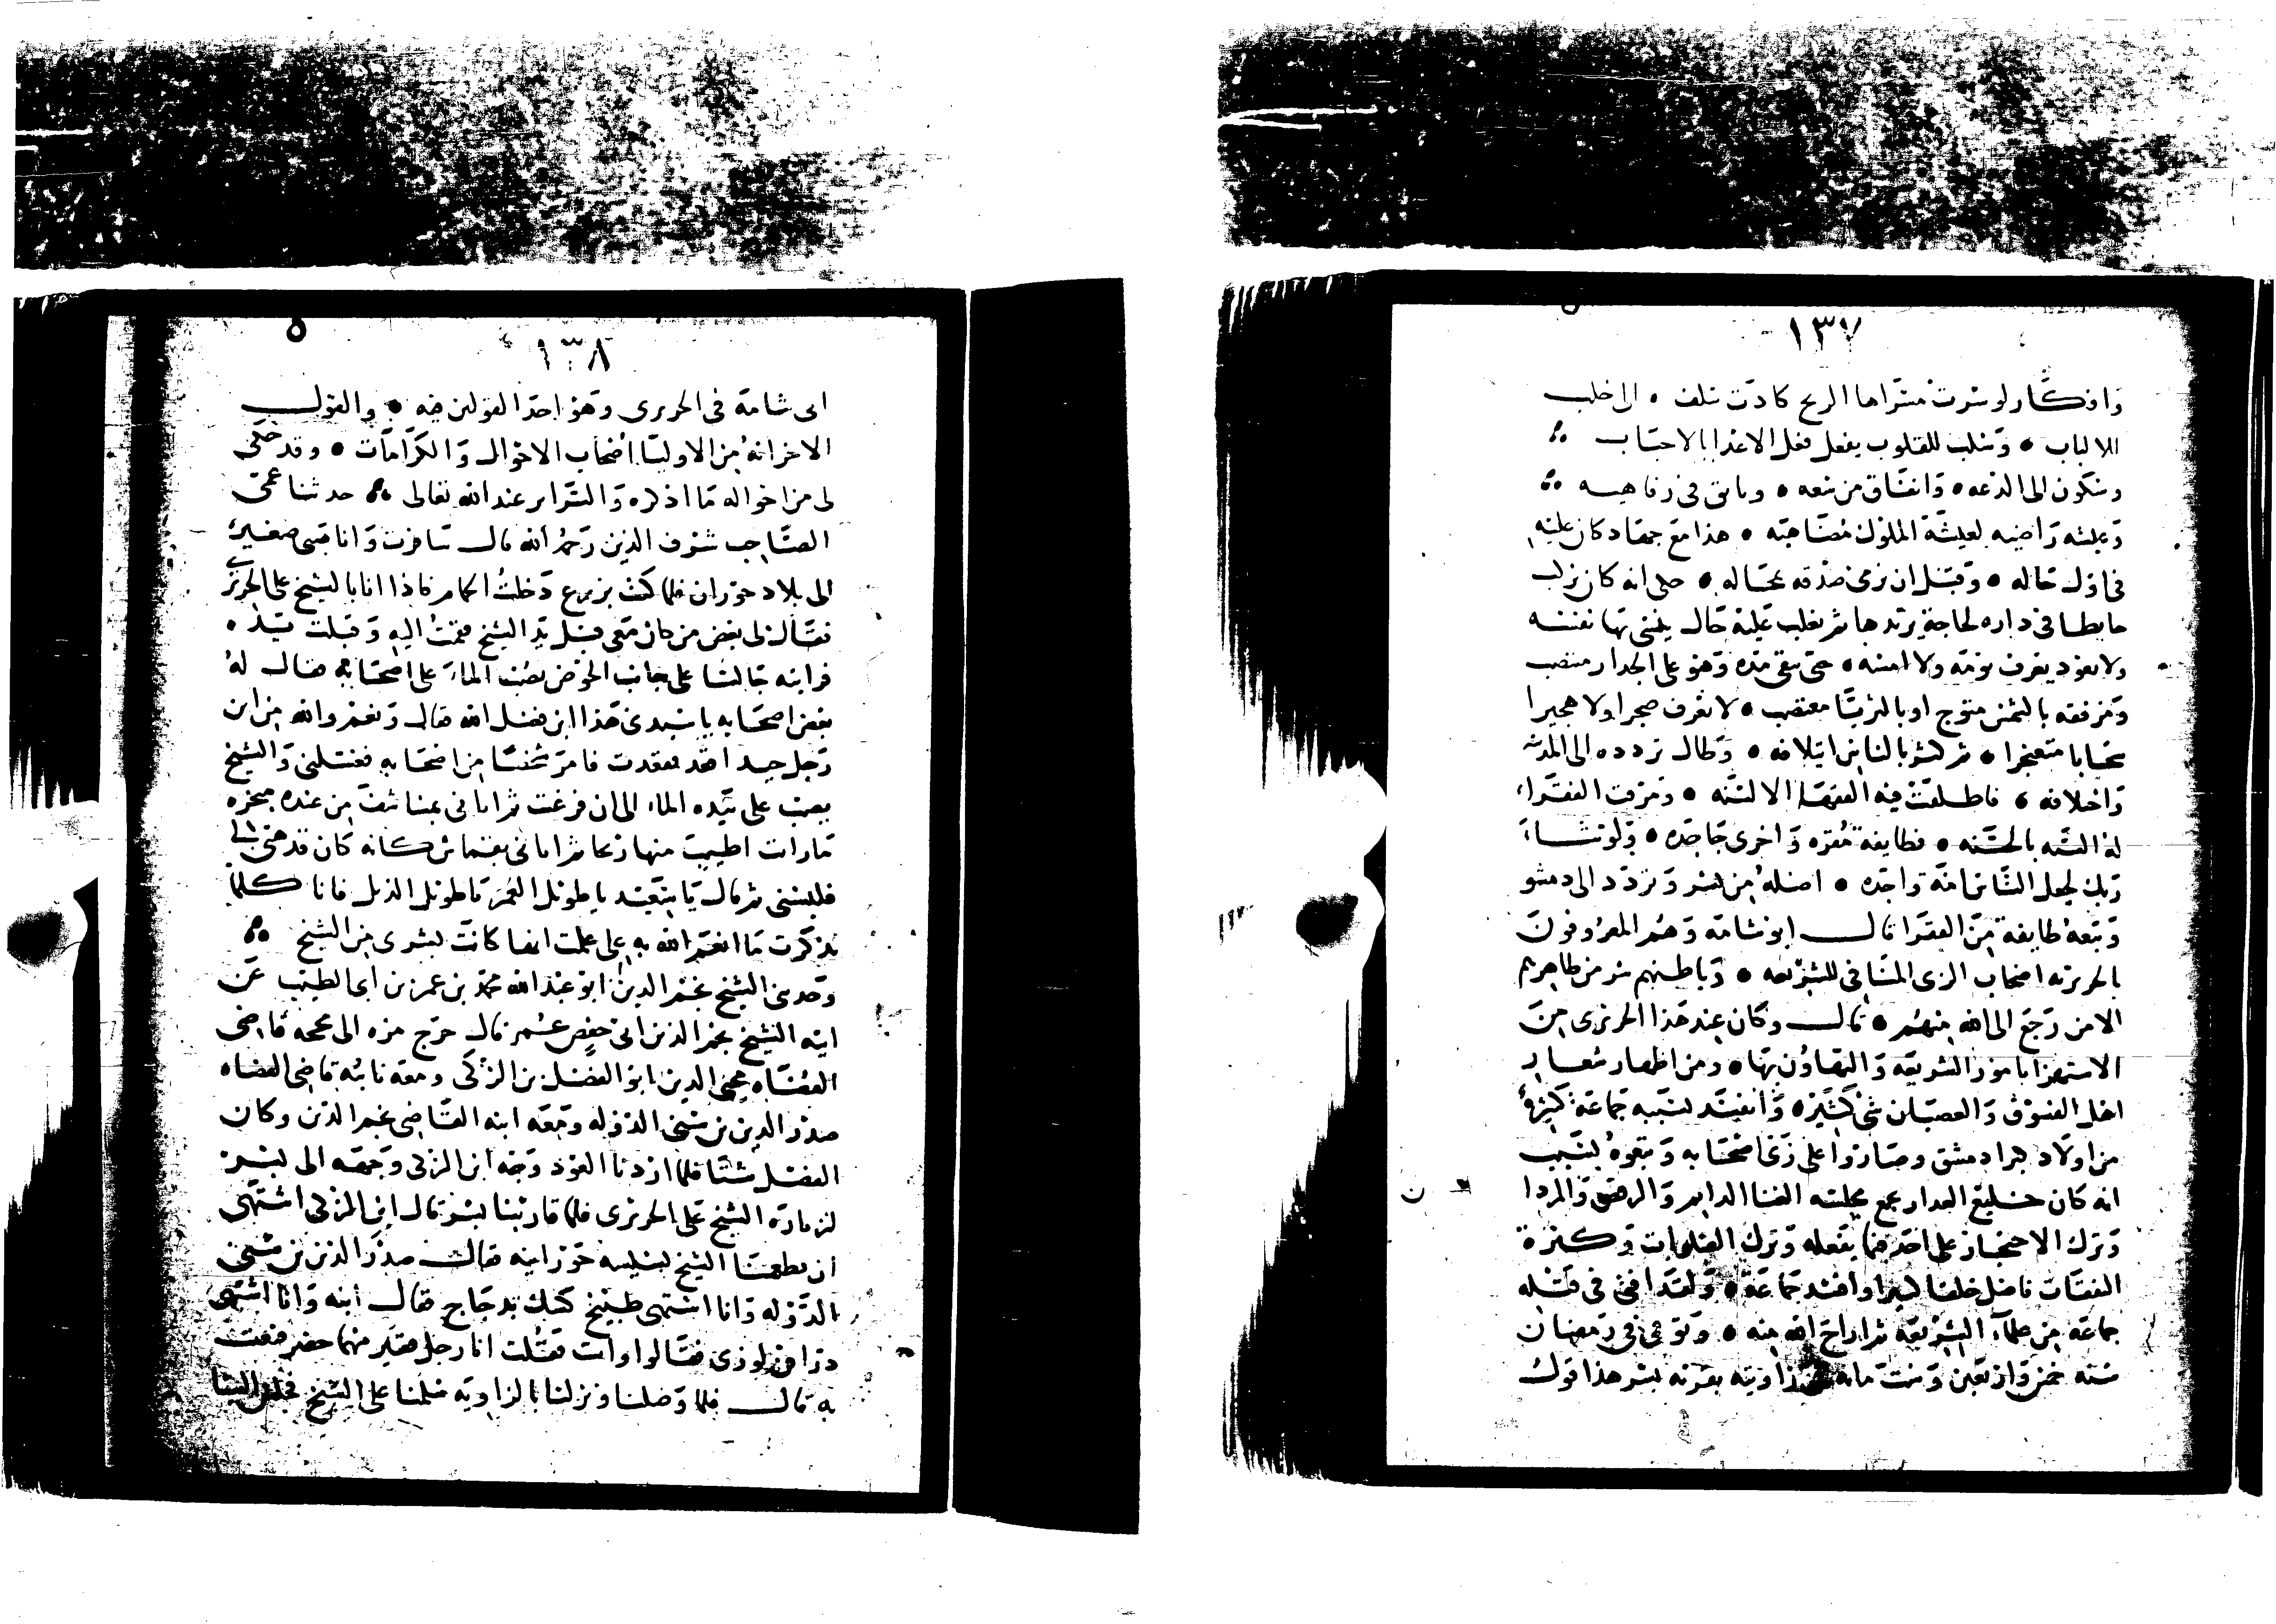 ١٣٧
وافكار لو سرت مسراها الريح كادت تتلف ٠ الى خلب
الالباب ٠ وسلب للقلوب يفعل فعل الاعدا بالاحباب
وسكون الى الدعه ٠ وانفاق من سعه ٠ وبانق في رفاهيه
وعيشه راضيه لعيشة الملوك مضاهيه ٠ هذا مع جهاد كان عليه
في اول حاله ٠ وقبل ان يرمى صدقه بمحاله ٠ حكى انه كان نزل
حايطا في داره لحاجة يريدها ثم يغلب عليه حال يلتهى بها نفسه
ولا يعود يعرف يومه ولا امسه ٠ حتى يبقى مده وهو على الجدار منتصب
ومرفقه بالشمس متوج او بالثريا معتصب ٠ لا يعرف ضجرا ولا هجيرا
سحابا متعنجرا ٠ ثم كثر بالناس ايتلافه ٠ وطال تردده الى المدينه
واخلافه ٠ فاطلقت فيه الفقها الالسنه ٠ ومزقت الفقراء
له السيه بالحسنه ٠ فطايفة مقره واخرى جاحده ٠ ولو شاء
ربك لجعل الناس امة واحده ٠ اصله من بسر وتردد الى دمشق
وتبعه طايفة من الفقرا قال ابو شامة وهم المعروفون
بالحريريه اصحاب الزى المنافي للشريعه ٠ وباطنهم شر من ظاهرهم
الا من رجع الى الله منهم ٠ قال وكان عند هذا الحريرى من
الاستهزا بامور الشريعه والتهاون بها ٠ ومن اظهار شعار
اهل الفسوق والعصيان شى كثير ٠ وانفسد بسببه جماعة كبيرة
من اولاد كبرا دمشق وصاروا على زى اصحابه وتبعوه بسبب
انه كان خليع العدار يجمع مجلسه الغنا الدايم والرقص والمردا
وترك الاحتجار على احد فيما يفعله وترك الصلوات وكثرة
النفقات فاضل خلقا كثيرا وافسد جماعة ٠ ولقد افتى في قتله
جماعة من علماء الشريعه ثم اراح الله منه ٠ وتوفى في رمضان
سنه خمس واربعين وست مايه زاويته بقرية بسر هذا قول
١٣٨
ابى شامة فى الحريرى وهو احد القولين فيه ٠ والقول
الاخر انه من الاوليا اصحاب الاحوال والكرامات ٠ وقد حكى
لى من احواله ما اذكره والسراير عند الله تعالى حدثنا عمى
الصاحب شرف الدين رحمه الله قال سافرت وانا صبى صغير
الى بلاد حوران فلما كنت بزرع دخلت الحمام فاذا انا بالشيخ على الحريرى
فقال لى بعض من كان معى قبل يد الشيخ فقمت اليه وقبلت يده
فرايته جالسا على جانب الحوض يصب الماء على اصحابه فقال له
بعض اصحابه يا سيدى هذا ابن فضل الله فقال ونعم والله من ابن
رجل جيد اقعد فقعدت فامر شخصا من اصحابه فغسلنى والشيخ
يصب على يده الماء الى ان فرغت ثم اتانى بمناشف من عنده مبخره
ما رايت اطيب منها ريحا ثم اتانى بقماش كانه كان قد هيى لى
فلبسنى ثم قال يا سعيد يا طويل العمر يا طويل الذيل فانا كلما
تذكرت ما انعم الله به على علمت انها كانت بشرى من الشيخ
وحدثنى الشيخ نجم الدين ابو عبد الله محمد بن عمر بن ابى الطيب عن
ابيه الشيخ نجم الدين ابى حفص عمر قال خرج مره الى محجه قاضى
القضاه محيى الدين ابو الفضل بن الزكى ومعه نايبه قاضى القضاه
صدر الدين بن سنى الدوله ومعه ابنه القاضى نجم الدين وكان
الفصل شتا فلما اردنا العود وجه ابن الزكى وجهه الى بسر
لزيارة الشيخ على الحريرى فلما قاربنا بسر قال ابن الزكى اشتهى
ان يطعمنا الشيخ بسليسه حورانيه فقال صدر الدين بن سنى
الدوله وانا اشتهى طبيخ كبك بدجاج فقال ابنه وانا اشتهى
فقالوا وانت فقلت انا رجل فقير مهما حضر قنعت
به قال فلما وصلنا ونزلنا بالزاويه سلمنا على الشيخ فجلس الينا